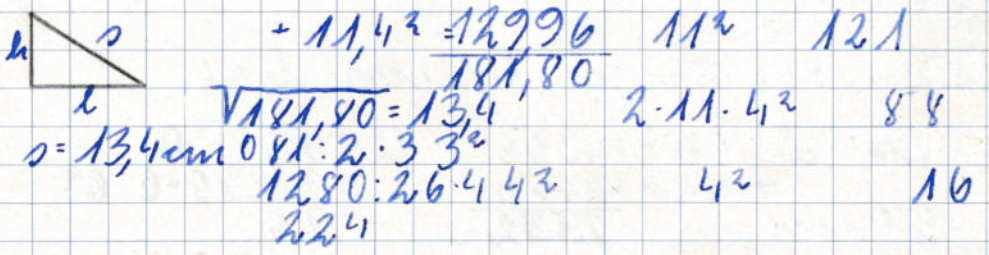 + 11,4² = 129,96 11² 121
h s 181,80
l √181,80 = 13,4 2·11·4² 88
s = 13,4 cm 081 : 2 · 3 3²
1280 : 26·4 4² 4² 16
224